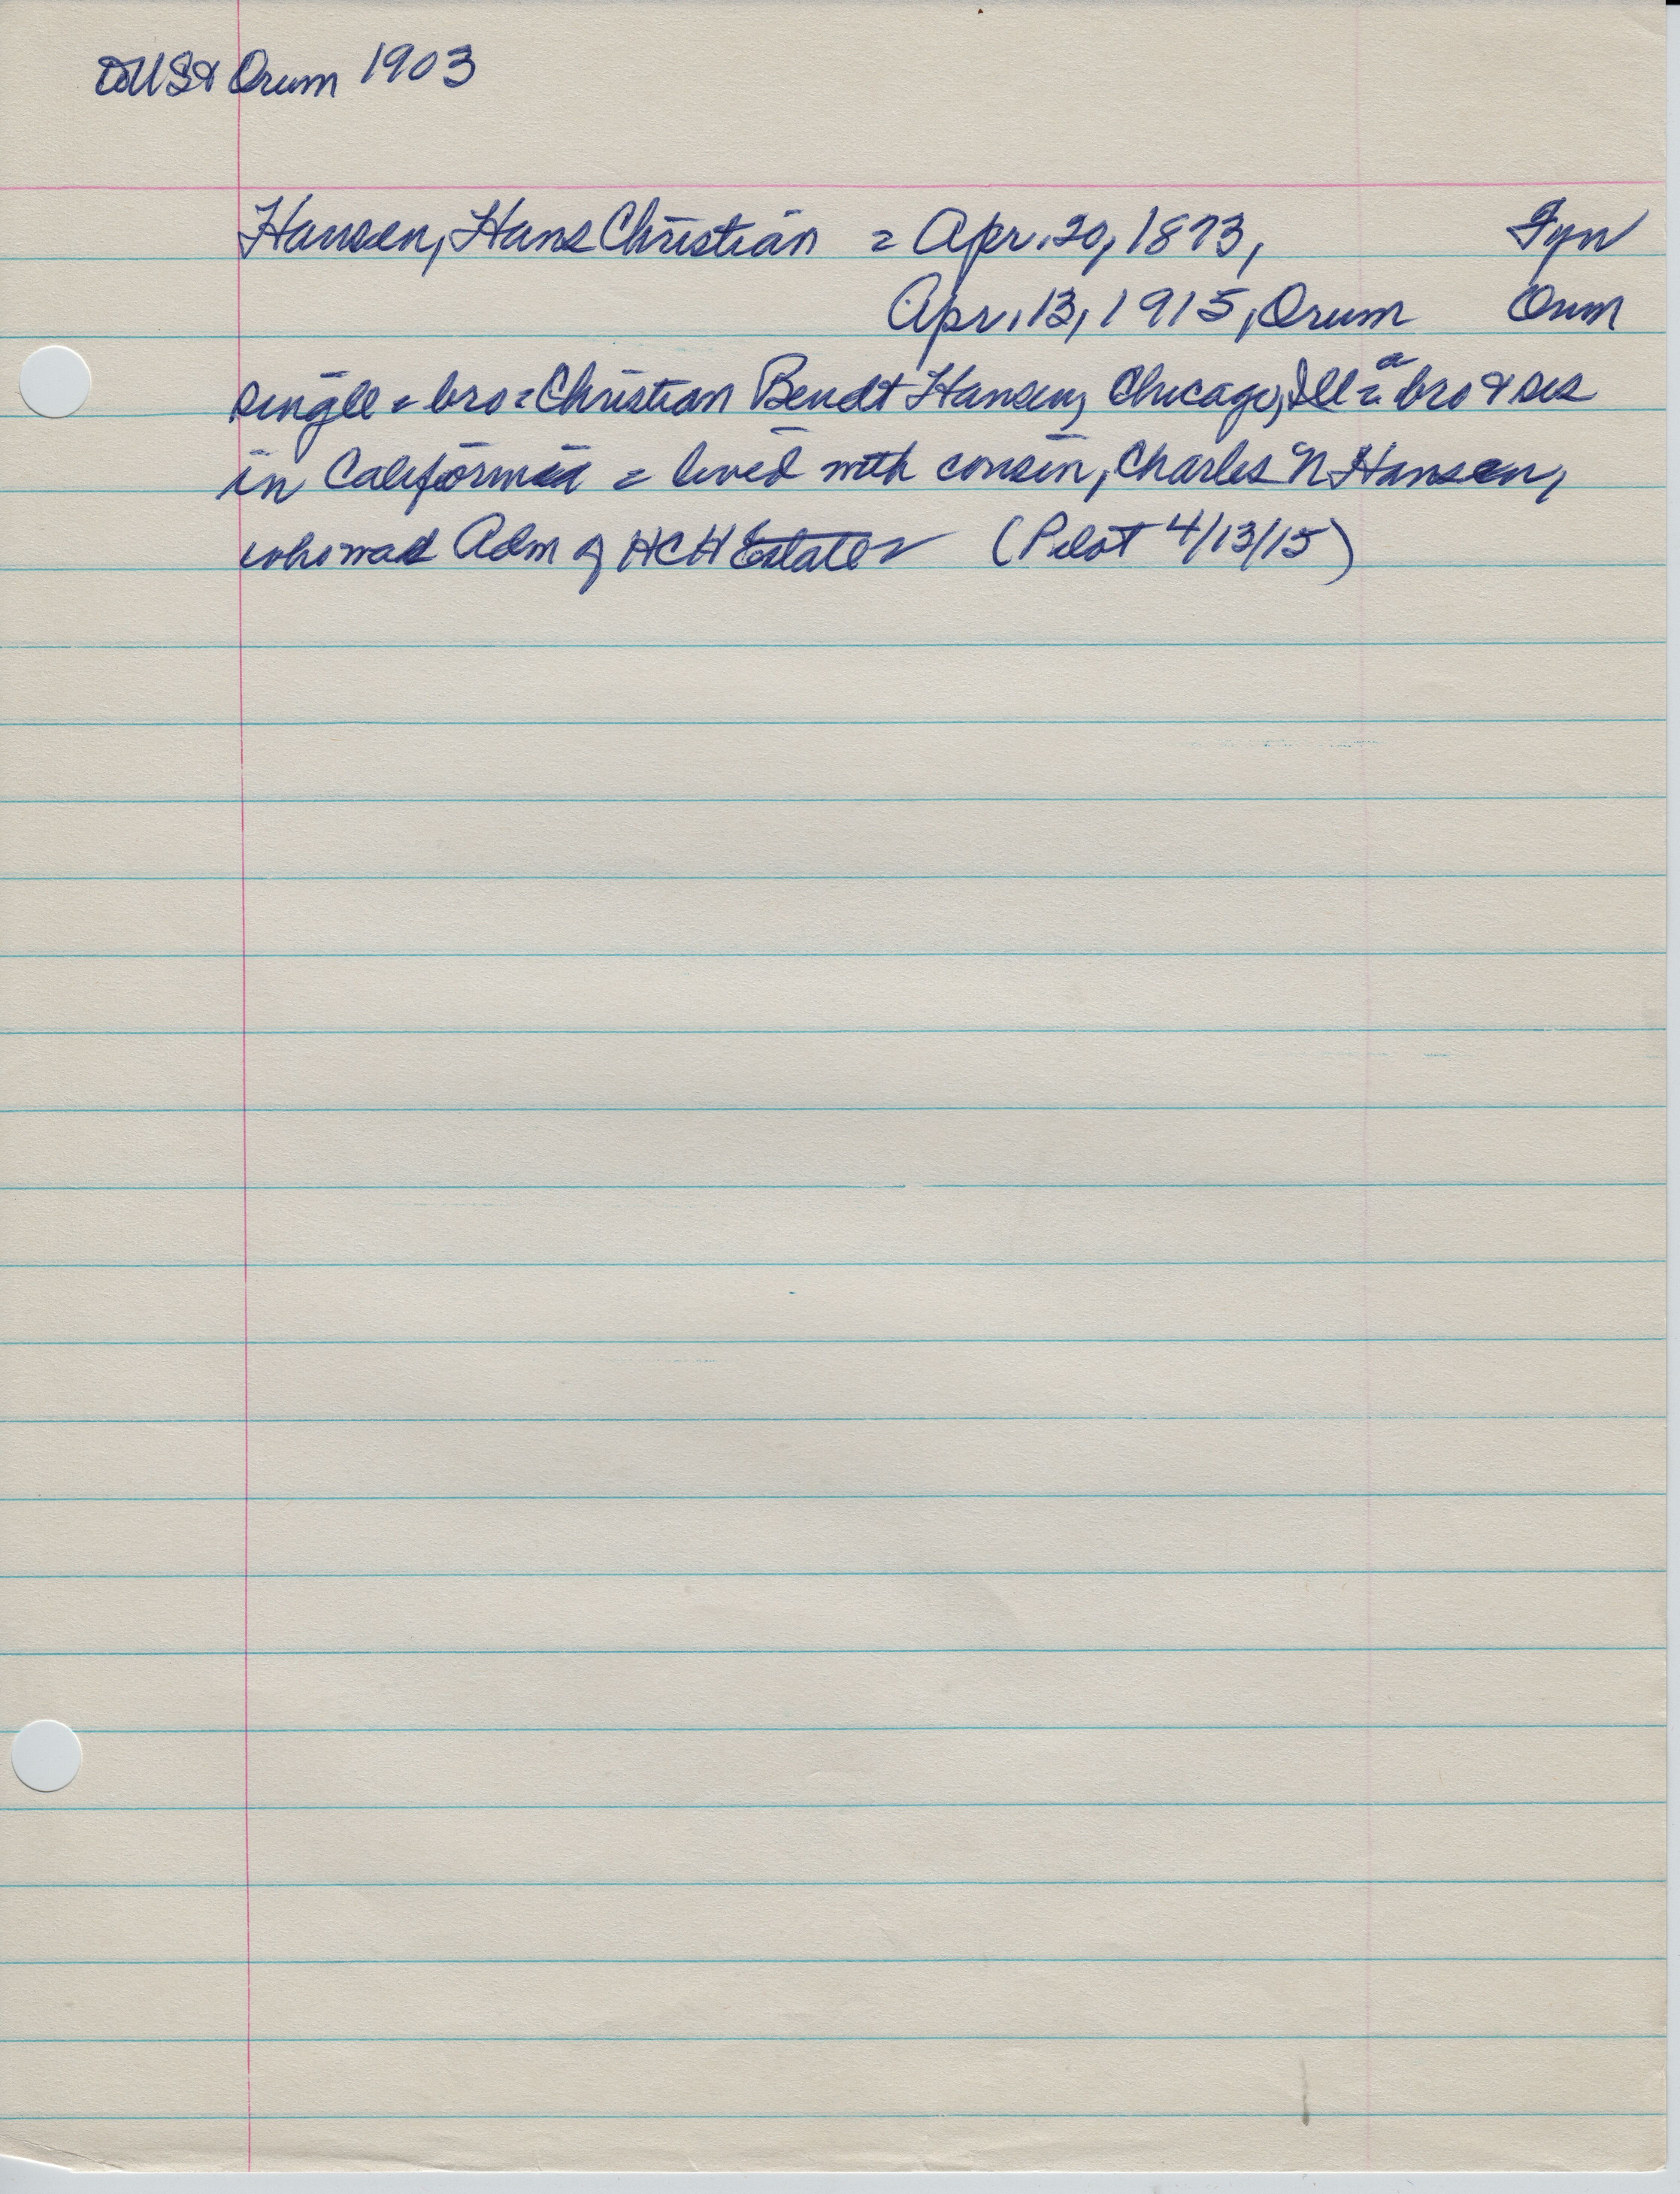 to US & Orum 1903
Hansen, Hans Christian = Apr. 20, 1873, Fyn
Apr. 13, 1915, Orum Orum
single = bro = Christian Bendt Hansen, Chicago, Ill = a bro & sis
in California = lived with cousin, Charles N Hansen,
who was Adm of HCH Estate (Pilot 4/13/15)